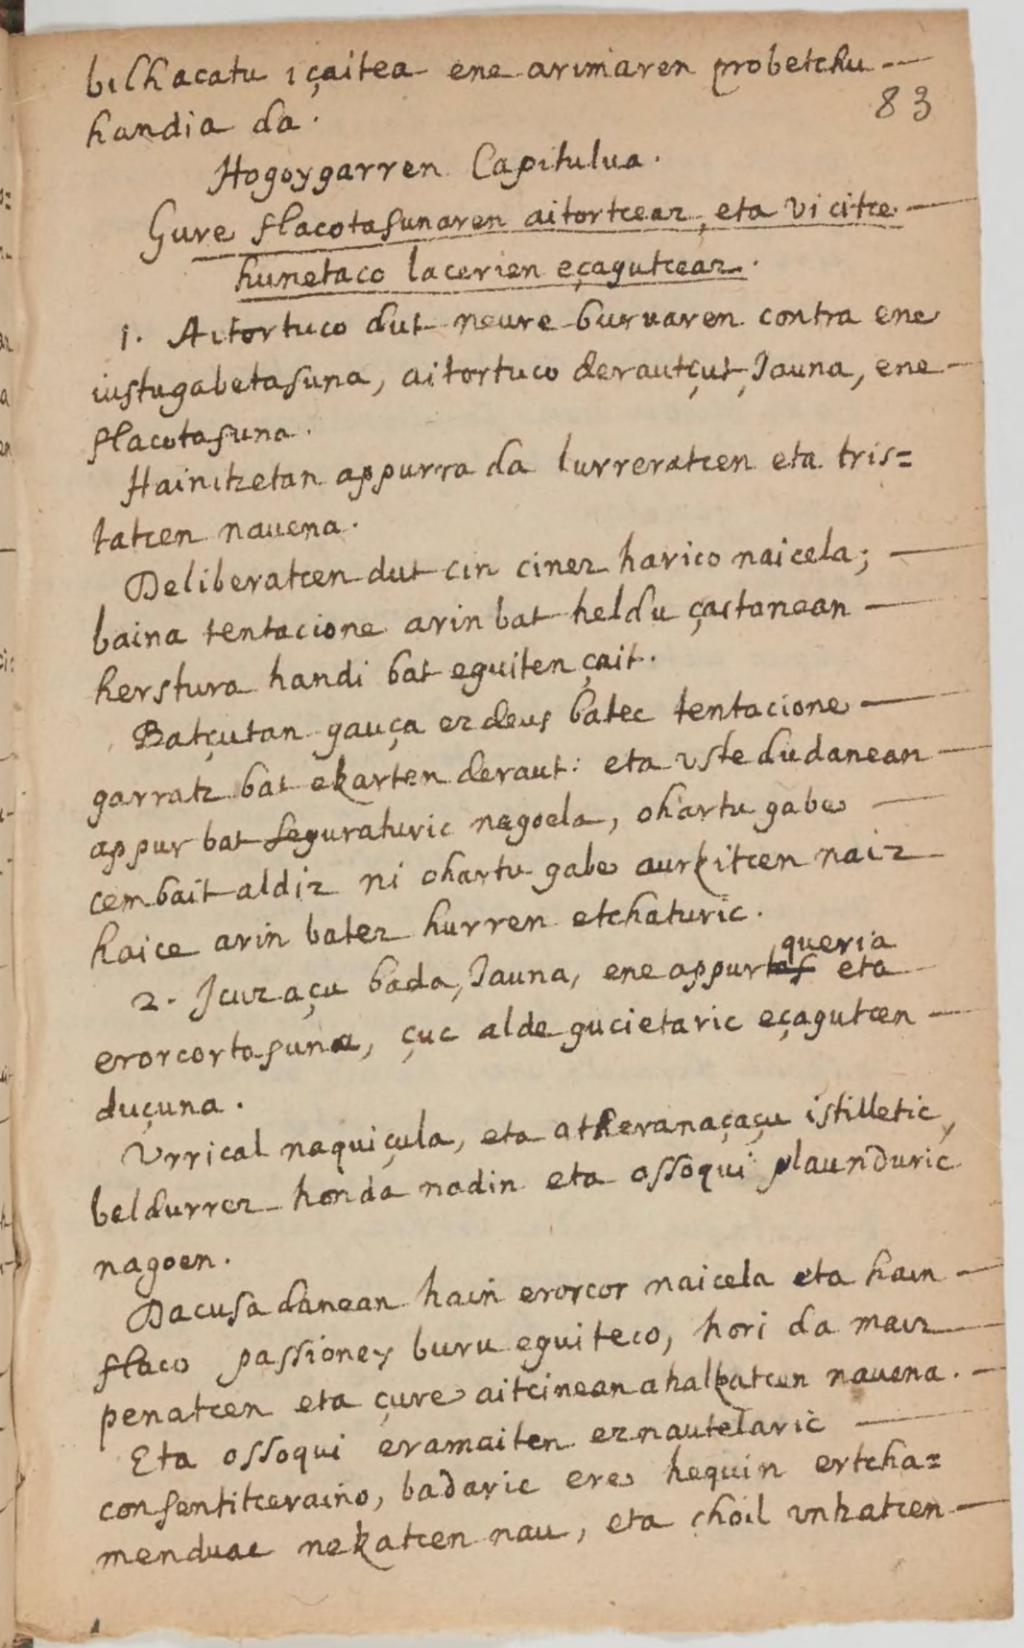 bilhacatu içaitea ene arimaren probetchu
83
handia da.
Hogoygarren Capitulua.
Gure flacotasunaren aitortceaz, eta vicitze
hunetaco lacerien eçagutceaz.
1. Aitortuco dut neure buruaren contra ene
iustugabetasuna, aitortuco derautçut, Jauna, ene
flacotasuna.
Hainitzetan appurra da lurreratcen eta tris=
tatcen nauena.
Deliberatcen dut cin cinez harico naicela;
baina tentacione arin bat heldu çaitanean
herstura handi bat eguiten çait.
Batçutan gauça ez deus batec tentacione
garratz bat ekarten deraut: eta uste dudanean
appur bat seguraturic nagoela, ohartu gabe
cembait aldiz ni ohartu gabe aurkitcen naiz
haice arin batez hurren etchaturic.
2. Icuz açu bada, Jauna, ene appurqueria eta
erorcortasuna, çuc alde gucietaric eçagutcen
duçuna.
Vrrical naquiçula, eta atheranaçaçu istilletic,
beldurrez honda nadin eta ossoqui plaunduric
nagoen.
Dacusadanean hain erorcor naicela eta hain
flaco passioney buru eguiteco, hori da maiz
penatcen eta çure aitcinean ahalkatcen nauena.
Eta ossoqui eramaiten eznautelaric
consentitceraino, badaric ere hequin ertcha=
menduac nekatcen nau, eta choil unhatcen